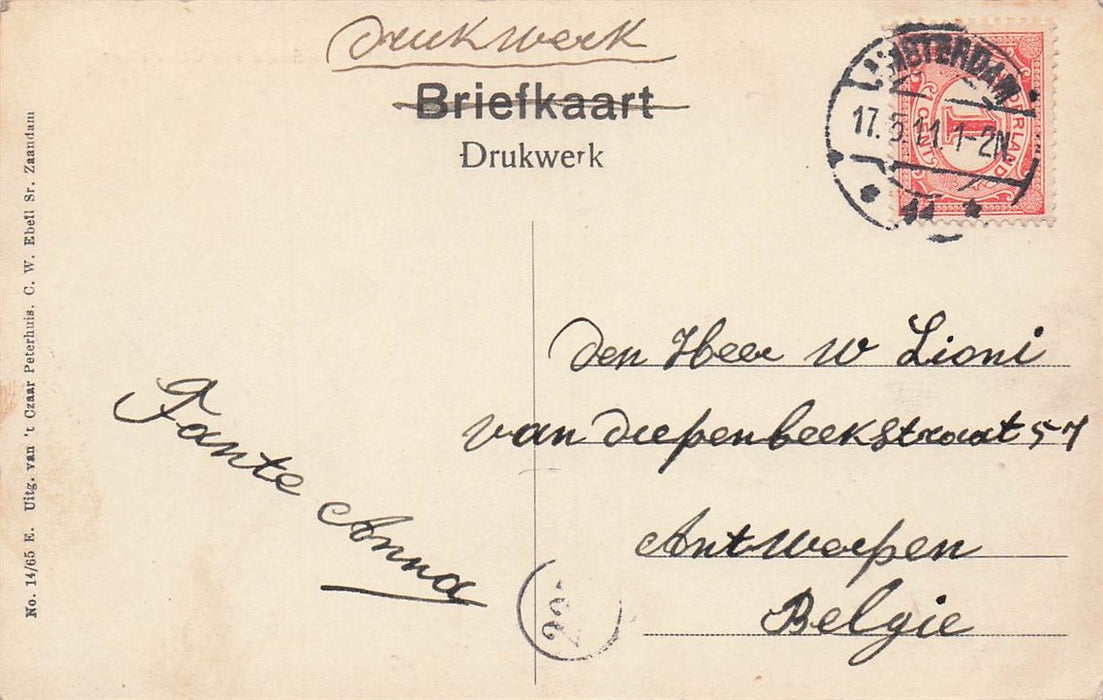 Drukwerk
Briefkaart
Drukwerk
AMSTERDAM
17.5.11.1-2N
NEDERLAND
1
CENT
den Heer W Lioni
van diepenbeekstraat 57
Antwerpen
Belgie
Tante Anna
No. 14/65 E. Uitg. van 't Czaar Peterhuis. C. W. Ebell Sr. Zaandam